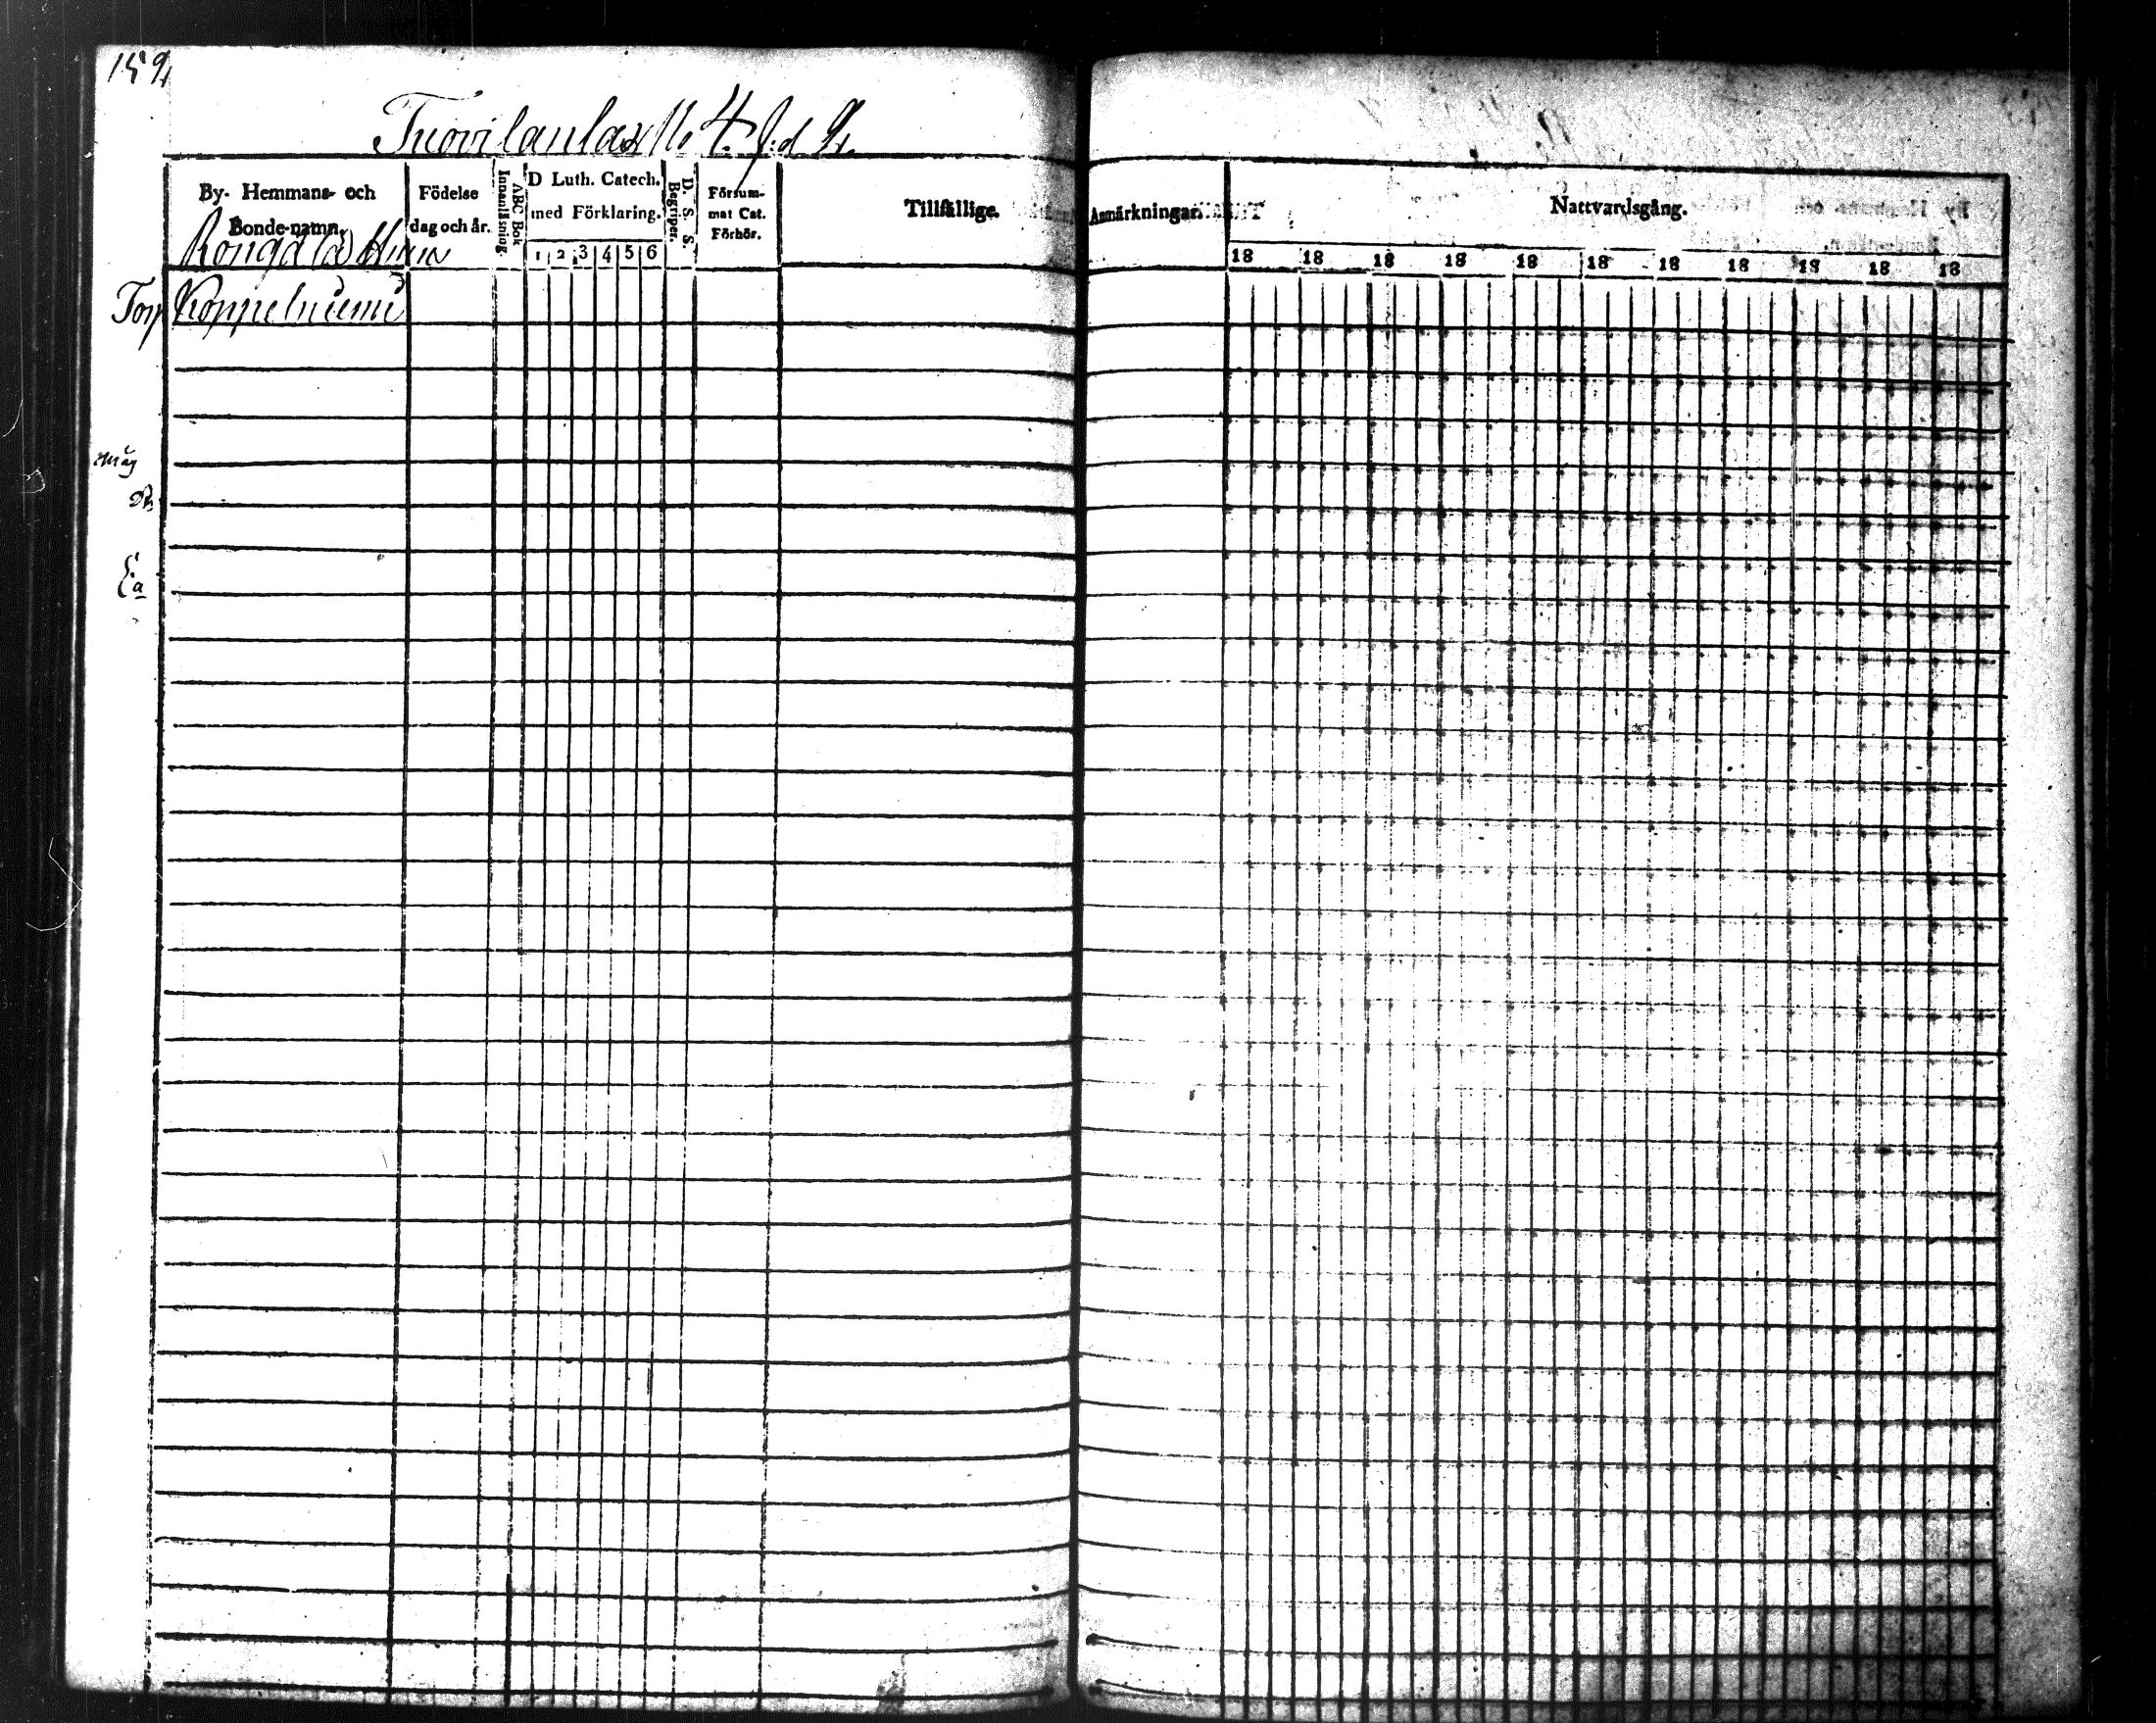 159
Tuovilanlax No 4.
By- Hemmans- och
Bonde-namn.
Födelse
dag och år.
Innanläsning.
ABC Bok
D Luth. Catech.
med Förklaring.
1 2 3 4 5 6
D. S. S.
Begriper.
Försum-
mat Cat.
Förhör.
Tillfällige
Anmärkningar.
Nattvardsgång.
18 18 18 18 18 18 18 18 18 18 18
Torp Koppeluiemi